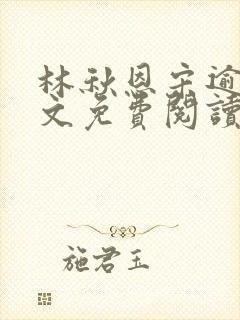 林秋恩宋逾
文免費閱讀
施君玉